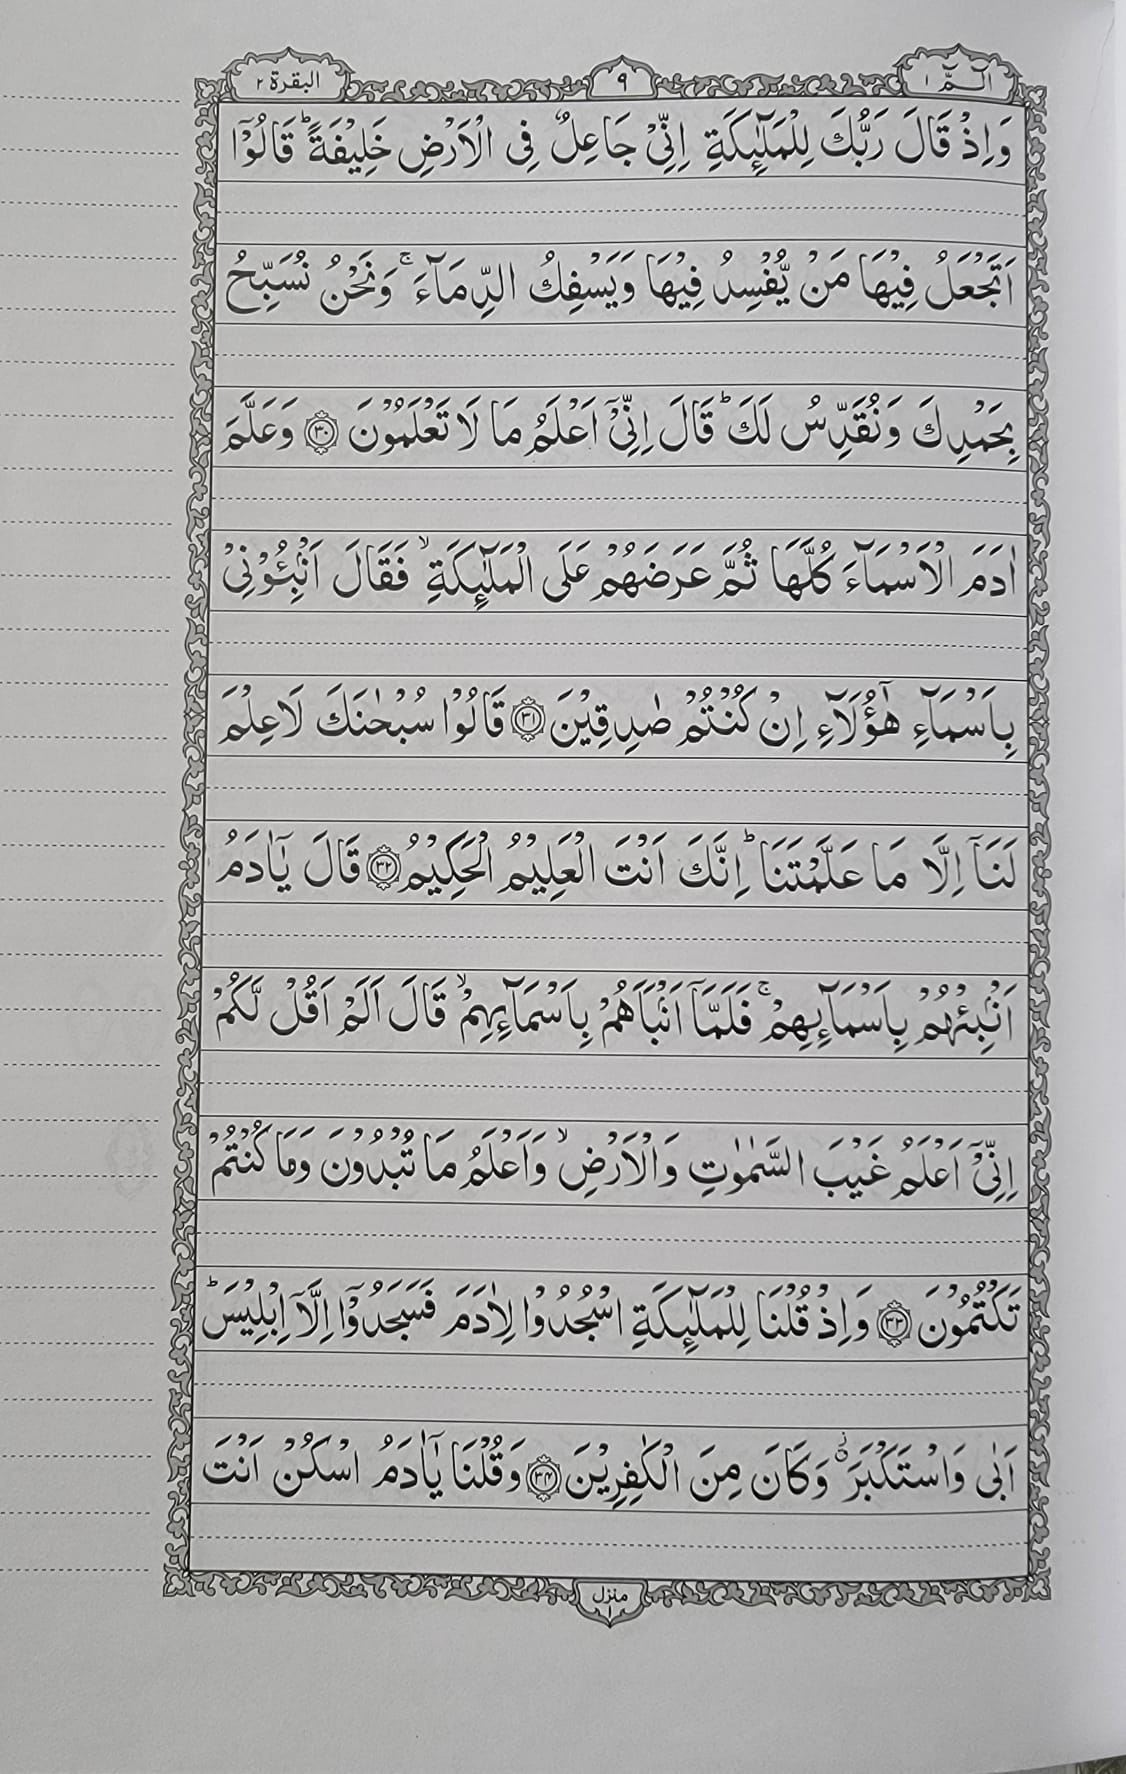 الٓـمّٓ ۱
۹
البقرة ۲
وَاِذْ قَالَ رَبُّكَ لِلْمَلٰٓئِكَةِ اِنِّیْ جَاعِلٌ فِی الْاَرْضِ خَلِیْفَةً ؕ قَالُوْۤا
اَتَجْعَلُ فِیْهَا مَنْ یُّفْسِدُ فِیْهَا وَیَسْفِكُ الدِّمَآءَ ۚ وَنَحْنُ نُسَبِّحُ
بِحَمْدِكَ وَنُقَدِّسُ لَكَ ؕ قَالَ اِنِّیْۤ اَعْلَمُ مَا لَا تَعْلَمُوْنَ ۝۳۰ وَعَلَّمَ
اٰدَمَ الْاَسْمَآءَ كُلَّهَا ثُمَّ عَرَضَهُمْ عَلَی الْمَلٰٓئِكَةِ ۙ فَقَالَ اَنْۢبِـُٔوْنِیْ
بِاَسْمَآءِ هٰۤؤُلَآءِ اِنْ كُنْتُمْ صٰدِقِیْنَ ۝۳۱ قَالُوْا سُبْحٰنَكَ لَا عِلْمَ
لَنَاۤ اِلَّا مَا عَلَّمْتَنَا ؕ اِنَّكَ اَنْتَ الْعَلِیْمُ الْحَكِیْمُ ۝۳۲ قَالَ یٰۤاٰدَمُ
اَنْۢبِئْهُمْ بِاَسْمَآئِهِمْ ۚ فَلَمَّاۤ اَنْۢبَاَهُمْ بِاَسْمَآئِهِمْ ۙ قَالَ اَلَمْ اَقُلْ لَّكُمْ
اِنِّیْۤ اَعْلَمُ غَیْبَ السَّمٰوٰتِ وَالْاَرْضِ ۙ وَاَعْلَمُ مَا تُبْدُوْنَ وَمَا كُنْتُمْ
تَكْتُمُوْنَ ۝۳۳ وَاِذْ قُلْنَا لِلْمَلٰٓئِكَةِ اسْجُدُوْا لِاٰدَمَ فَسَجَدُوْۤا اِلَّاۤ اِبْلِیْسَ ؕ
اَبٰی وَاسْتَكْبَرَ ۫ۗ وَكَانَ مِنَ الْكٰفِرِیْنَ ۝۳۴ وَقُلْنَا یٰۤاٰدَمُ اسْكُنْ اَنْتَ
منزل ۱